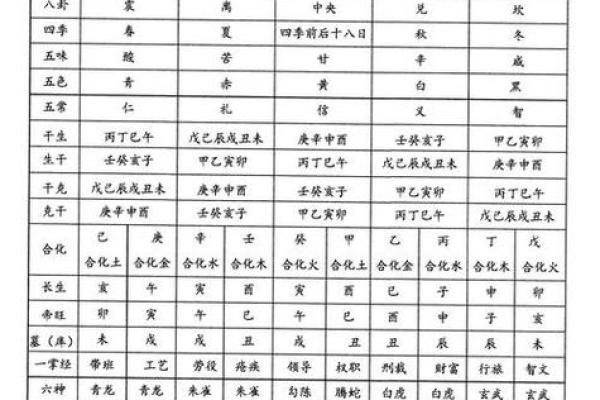 八卦 震 离 中央 兑 坎
四季 春 夏 四季前后十八日 秋 冬
五味 酸 苦 甘 辛 咸
五色 青 赤 黄 白 黑
五常 仁 礼 信 义 智
干生 丙丁巳午 戊己辰戌丑未 庚辛申酉 壬癸亥子 甲乙寅卯
生干 壬癸亥子 甲乙寅卯 丙丁巳午 戊己辰戌丑未 庚辛申酉
干克 戊己辰戌丑未 庚辛申酉 壬癸亥子 甲乙寅卯 丙丁巳午
克干 庚辛申酉 壬癸亥子 甲乙寅卯 丙丁巳午 戊己辰戌丑未
己 庚 辛 壬 癸 甲 乙 丙 丁 戊
合化 合化土 合化金 合化水 合化木 合化火 合化土 合化金 合化水 合化木 合化火
长生 亥 午 寅 酉 寅 酉 巳 子 申 卯
帝旺 卯 寅 午 巳 午 巳 酉 申 子 亥
墓（库） 未 戌 戌 丑 戌 丑 丑 辰 辰 未
一掌经 带班 工艺 劳役 疮疾 领导 权职 刑裁 财富 行旅 智文
六神 青龙 青龙 朱雀 朱雀 勾陈 腾蛇 白虎 白虎 玄武 玄武